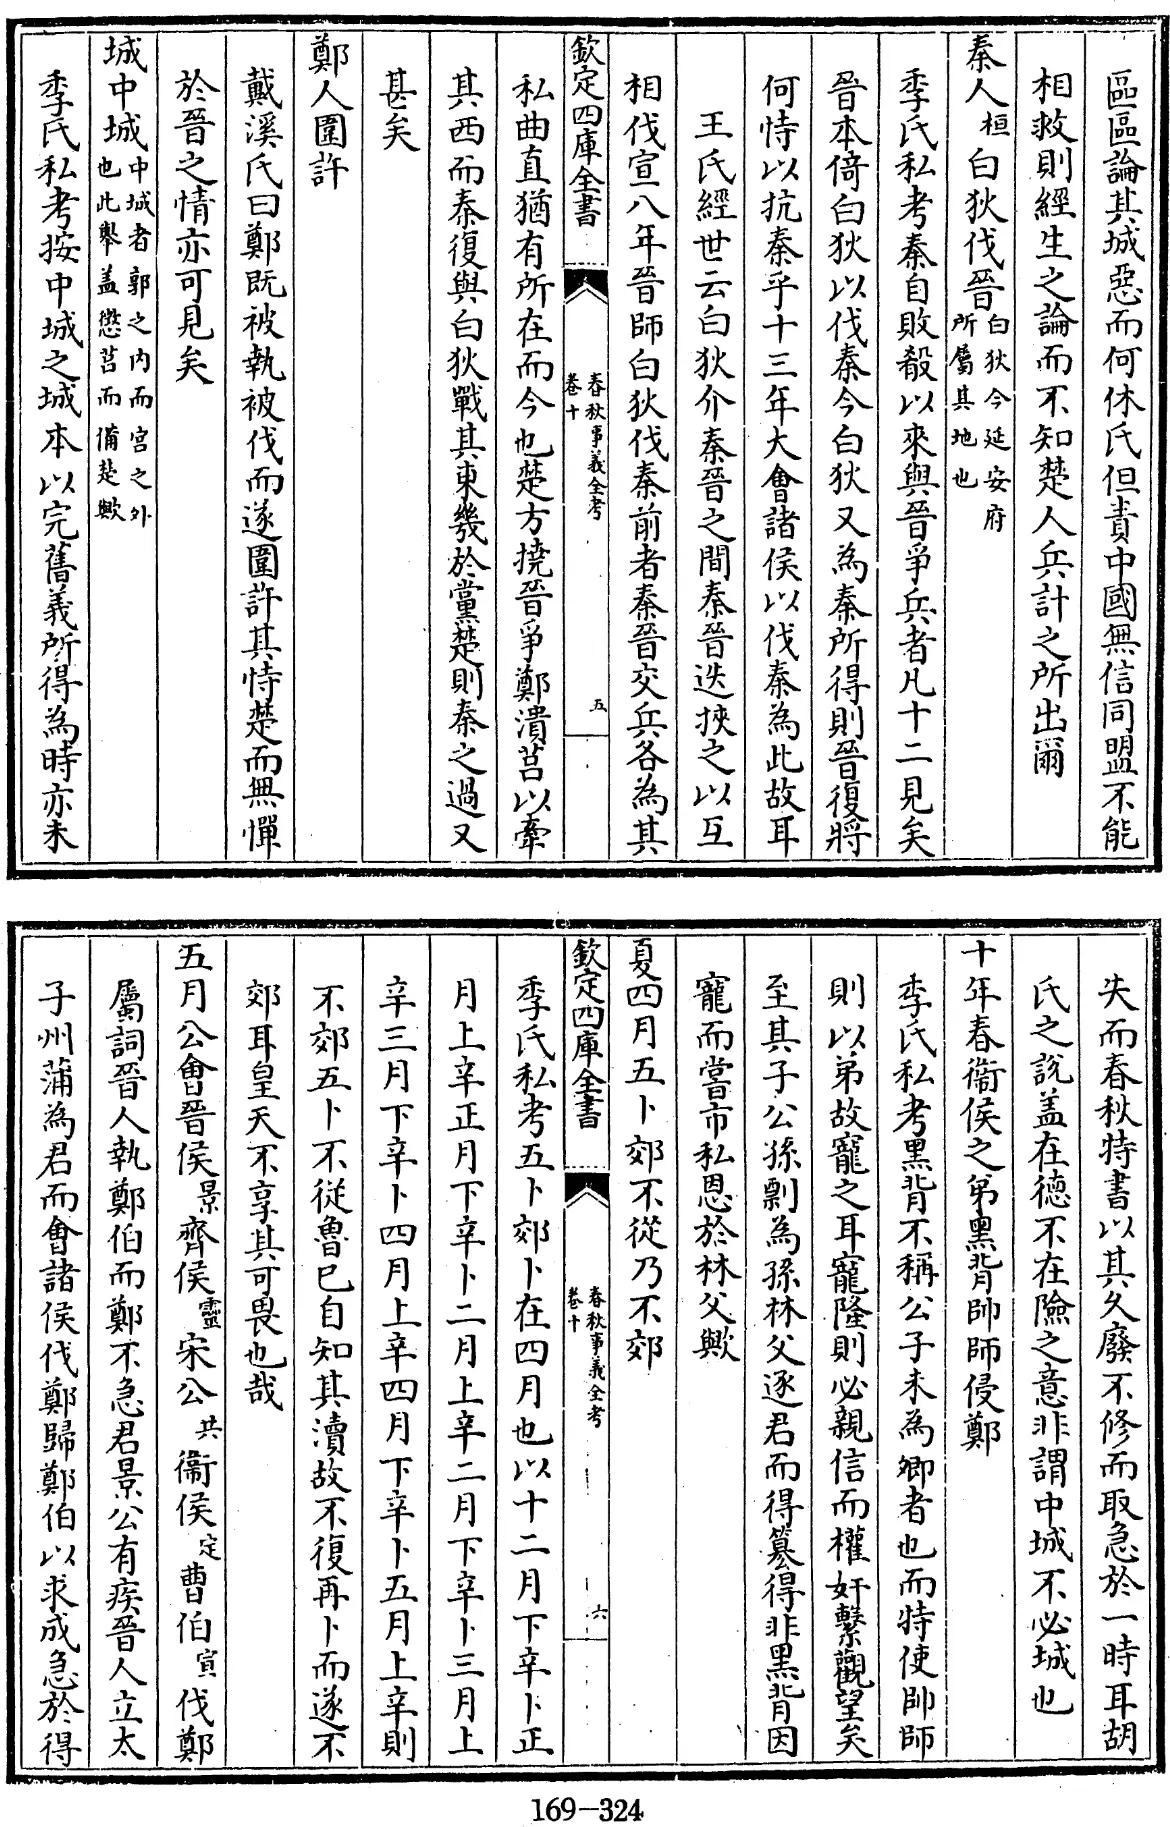 區區論其城惡而何休氏但責中國無信同盟不能
相救則經生之論而不知楚人兵計之所出爾
秦人桓白狄伐晉白狄今延安府所屬其地也
季氏私考秦自敗殽以來與晉爭兵者凡十二見矣
晉本倚白狄以伐秦今白狄又為秦所得則晉復將
何恃以抗秦乎十三年大會諸侯以伐秦為此故耳
王氏經世云白狄介秦晉之間秦晉迭挾之以互
相伐宣八年晉師白狄伐秦前者秦晉交兵各為其
欽定四庫全書 春秋事義全考 卷十 五
私曲直猶有所在而今也楚方撓晉爭鄭潰莒以牽
其西而秦復與白狄戰其東幾於黨楚則秦之過又
甚矣
鄭人圍許
戴溪氏曰鄭既被執被伐而遂圍許其恃楚而無憚
於晉之情亦可見矣
城中城中城者郭之内而宮之外也此舉盖懲莒而備楚歟
季氏私考按中城之城本以完舊義所得為時亦未
失而春秋特書以其久廢不修而取急於一時耳胡
氏之說盖在德不在險之意非謂中城不必城也
十年春衞侯之弟黑背帥師侵鄭
季氏私考黑背不稱公子未為卿者也而特使帥師
則以弟故寵之耳寵隆則必親信而權奸繫觀望矣
至其子公孫剽為孫林父逐君而得簒得非黑背因
寵而嘗市私恩於林父歟
夏四月五卜郊不從乃不郊
欽定四庫全書 春秋事義全考 卷十 六
季氏私考五卜郊卜在四月也以十二月下辛卜正
月上辛正月下辛卜二月上辛二月下辛卜三月上
辛三月下辛卜四月上辛四月下辛卜五月上辛則
不郊五卜不從魯已自知其瀆故不復再卜而遂不
郊耳皇天不享其可畏也哉
五月公會晉侯景齊侯靈宋公共衞侯定曹伯宣伐鄭
屬詞晉人執鄭伯而鄭不急君景公有疾晉人立太
子州蒲為君而會諸侯伐鄭歸鄭伯以求成急於得
169-324